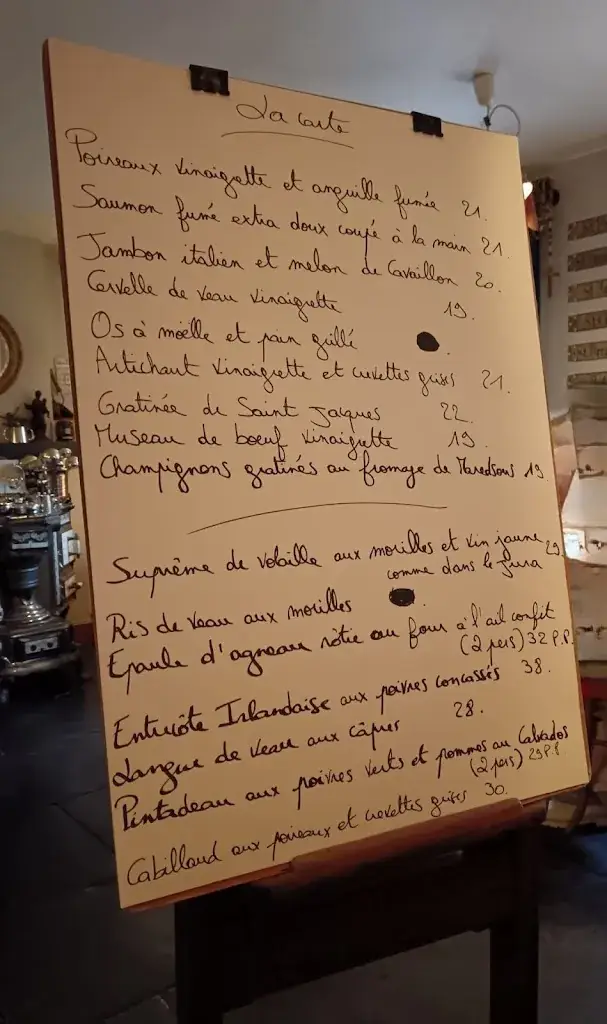 La carte
Poireaux vinaigrette et anguille fumée 21.
Saumon fumé extra doux coupé à la main 21.
Jambon italien et melon de Cavaillon 20.
Cervelle de veau vinaigrette 19.
Os à moëlle et pain grillé
Artichaut vinaigrette et crevettes grises 21.
Gratinée de Saint Jacques 22.
Museau de boeuf vinaigrette 19.
Champignons gratinés au fromage de Maredsous 19.
Suprême de volaille aux morilles et vin jaune 29.
comme dans le Jura
Ris de veau aux morilles
Epaule d'agneau rôtie au four à l'ail confit
(2 pers) 32 P.P.
Entrecôte Irlandaise aux poivres concassés 38.
Langue de veau aux câpres 28.
Pintadeau aux poivres verts et pommes au Calvados
(2 pers) 29 P.P.
Cabillaud aux poireaux et crevettes grises 30.